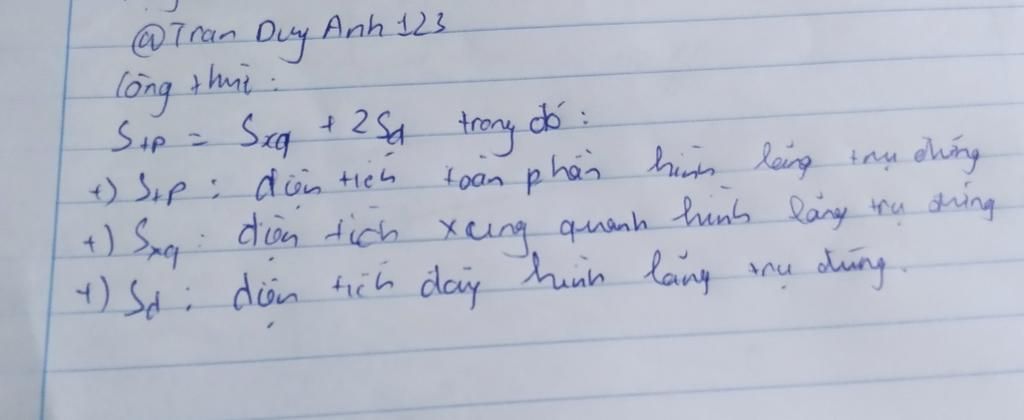 @Tran Duy Anh 123
Công thức:
Stp = Sxq + 2Sđ trong đó:
+) Stp: diện tích toàn phần hình lăng trụ đứng
+) Sxq: diện tích xung quanh hình lăng trụ đứng
+) Sđ: diện tích đáy hình lăng trụ đứng.